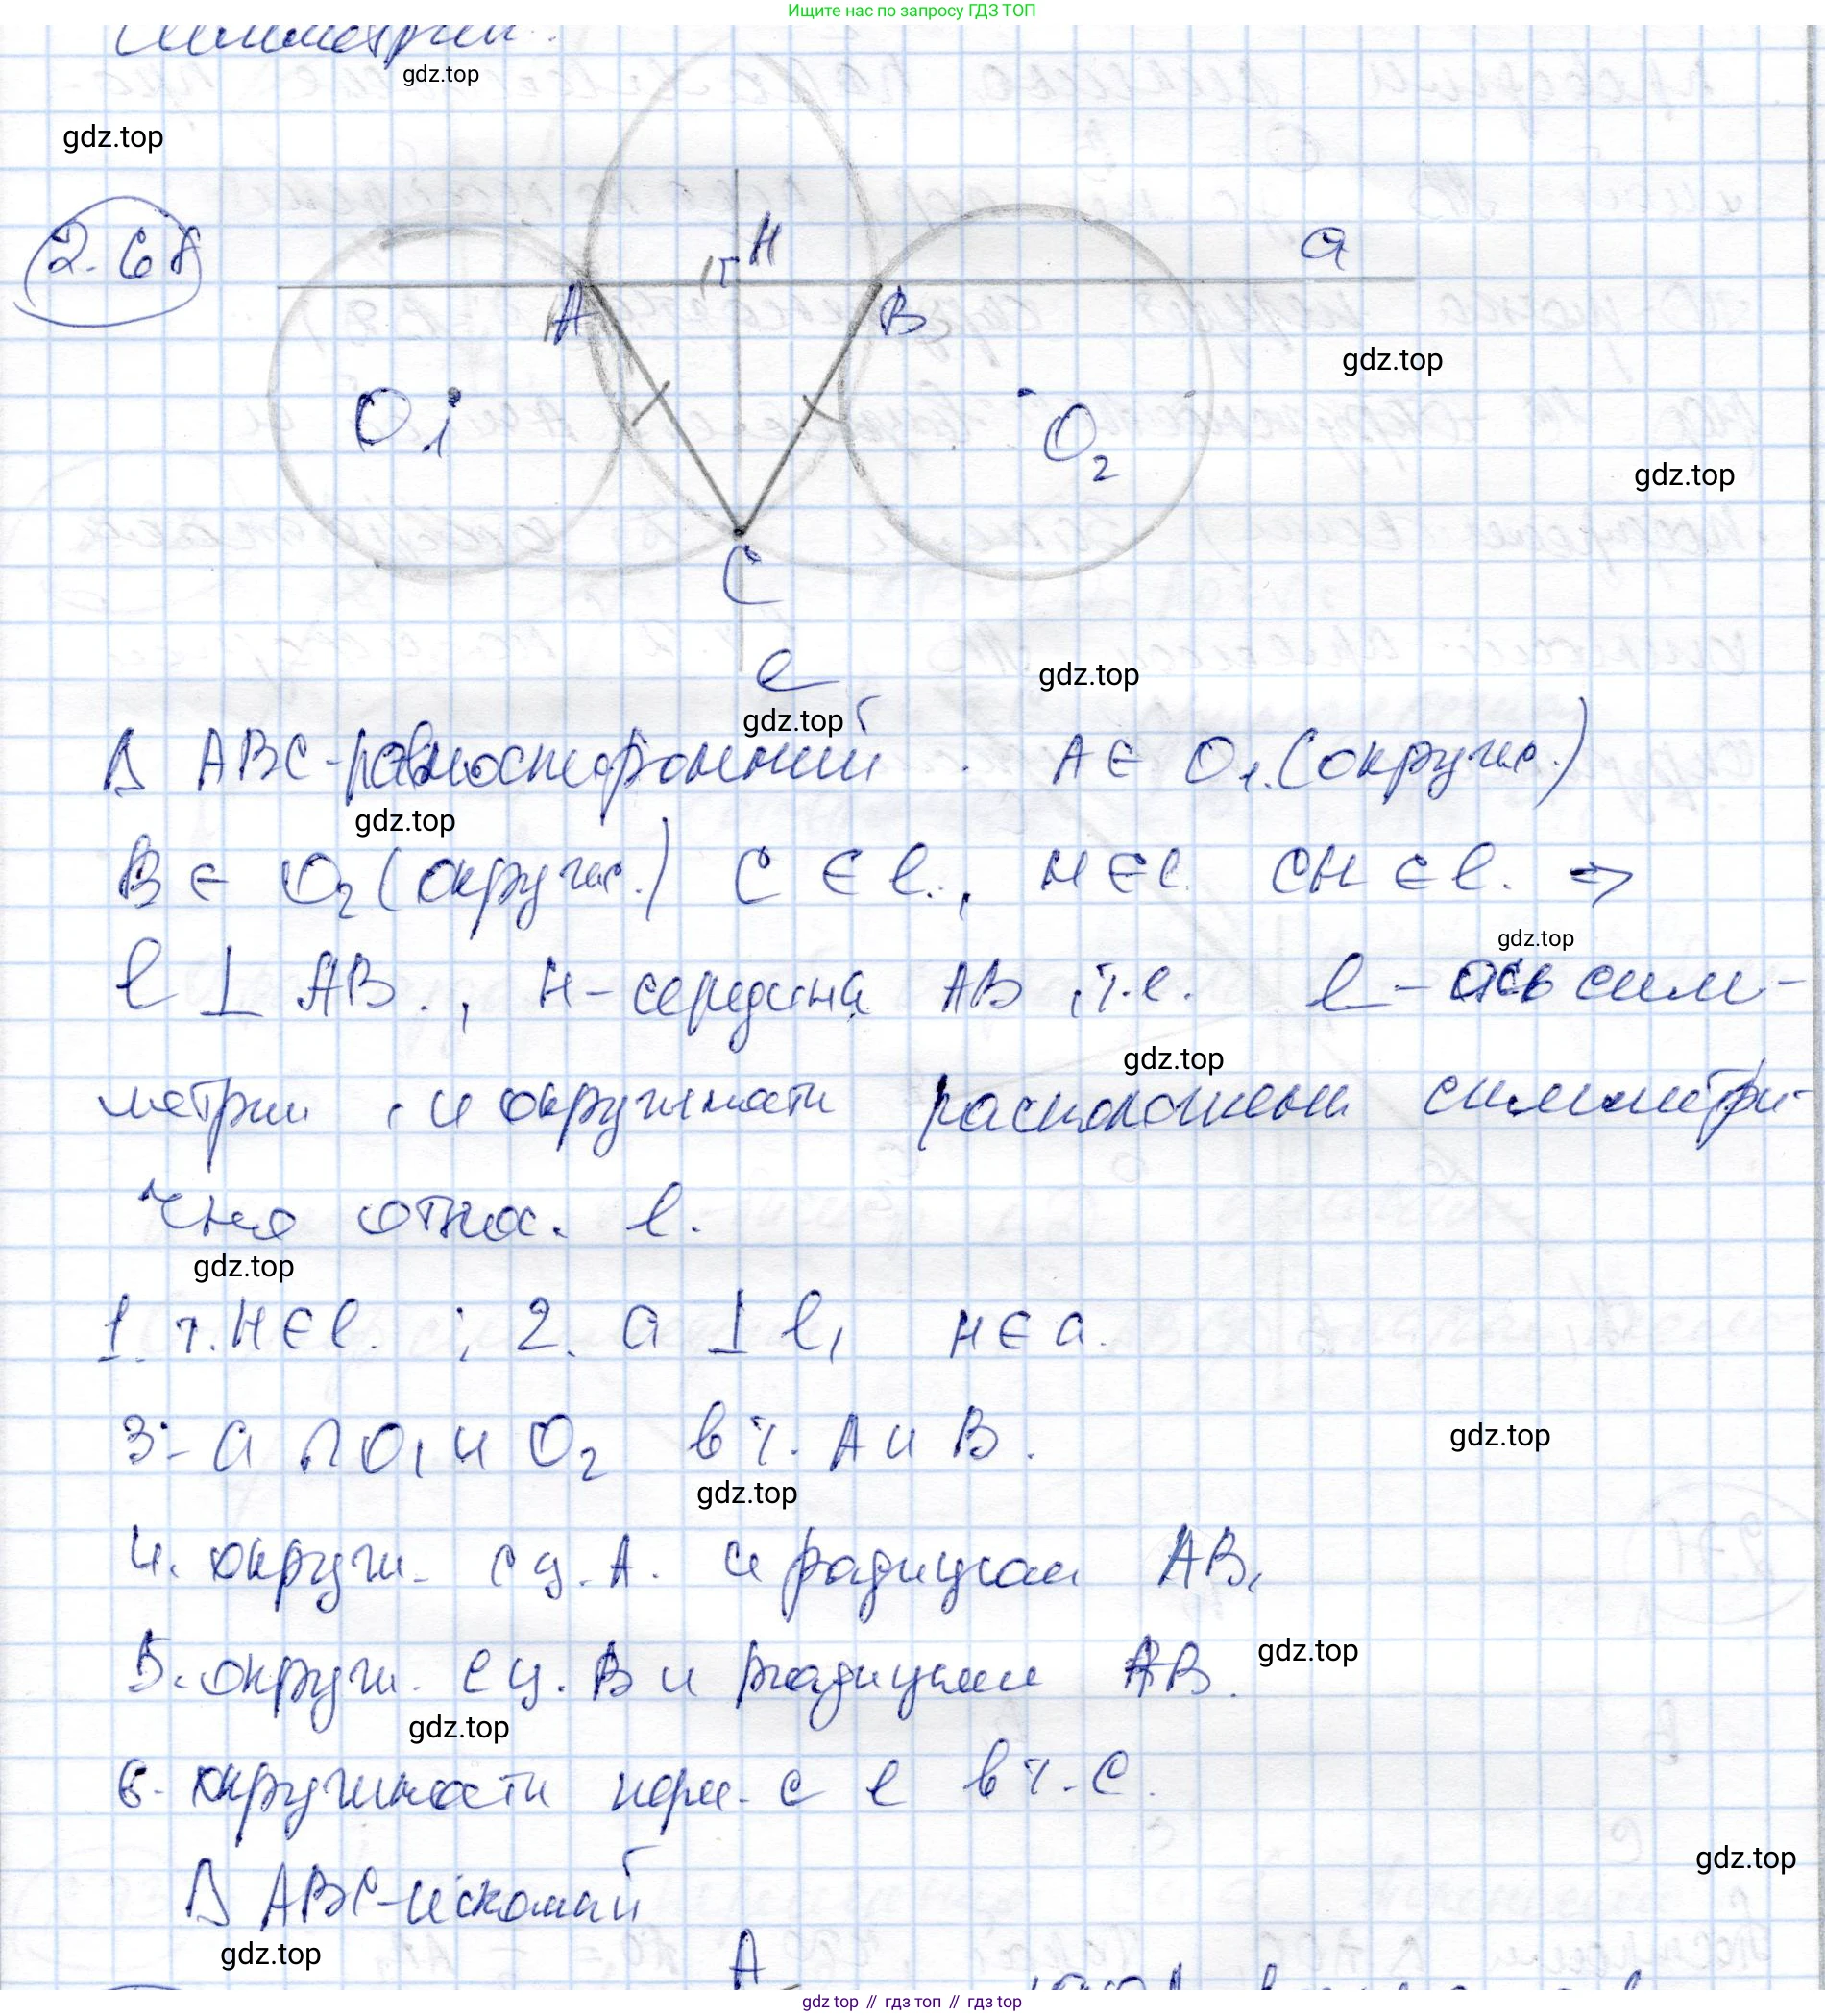 Ищите нас по запросу ГДЗ ТОП
симметрии.
gdz.top
gdz.top
2.68
H
a
A
B
gdz.top
O1
O2
gdz.top
C
l
gdz.top
gdz.top
Δ ABC-равносторонний. A ∈ O1.(окружн.)
gdz.top
B ∈ O2 (окружн.) C ∈ l., H ∈ l. CH ∈ l. ⇒
gdz.top
l ⊥ AB., H-середина AB, т.е. l - ось сим-
gdz.top
метрии, и окружности расположены симметри-
чно относ. l.
gdz.top
1. т. H ∈ l. ; 2. a ⊥ l, H ∈ a.
3. a ∩ O1 и O2 в т. A и B.
gdz.top
gdz.top
4. окружн. с ц. A. и радиусом AB,
5. окружн. с ц. B и радиусом AB.
gdz.top
gdz.top
6. окружности перес. с l в т. C.
gdz.top
Δ ABC-искомый
gdz.top
A
gdz top // гдз топ // гдз top